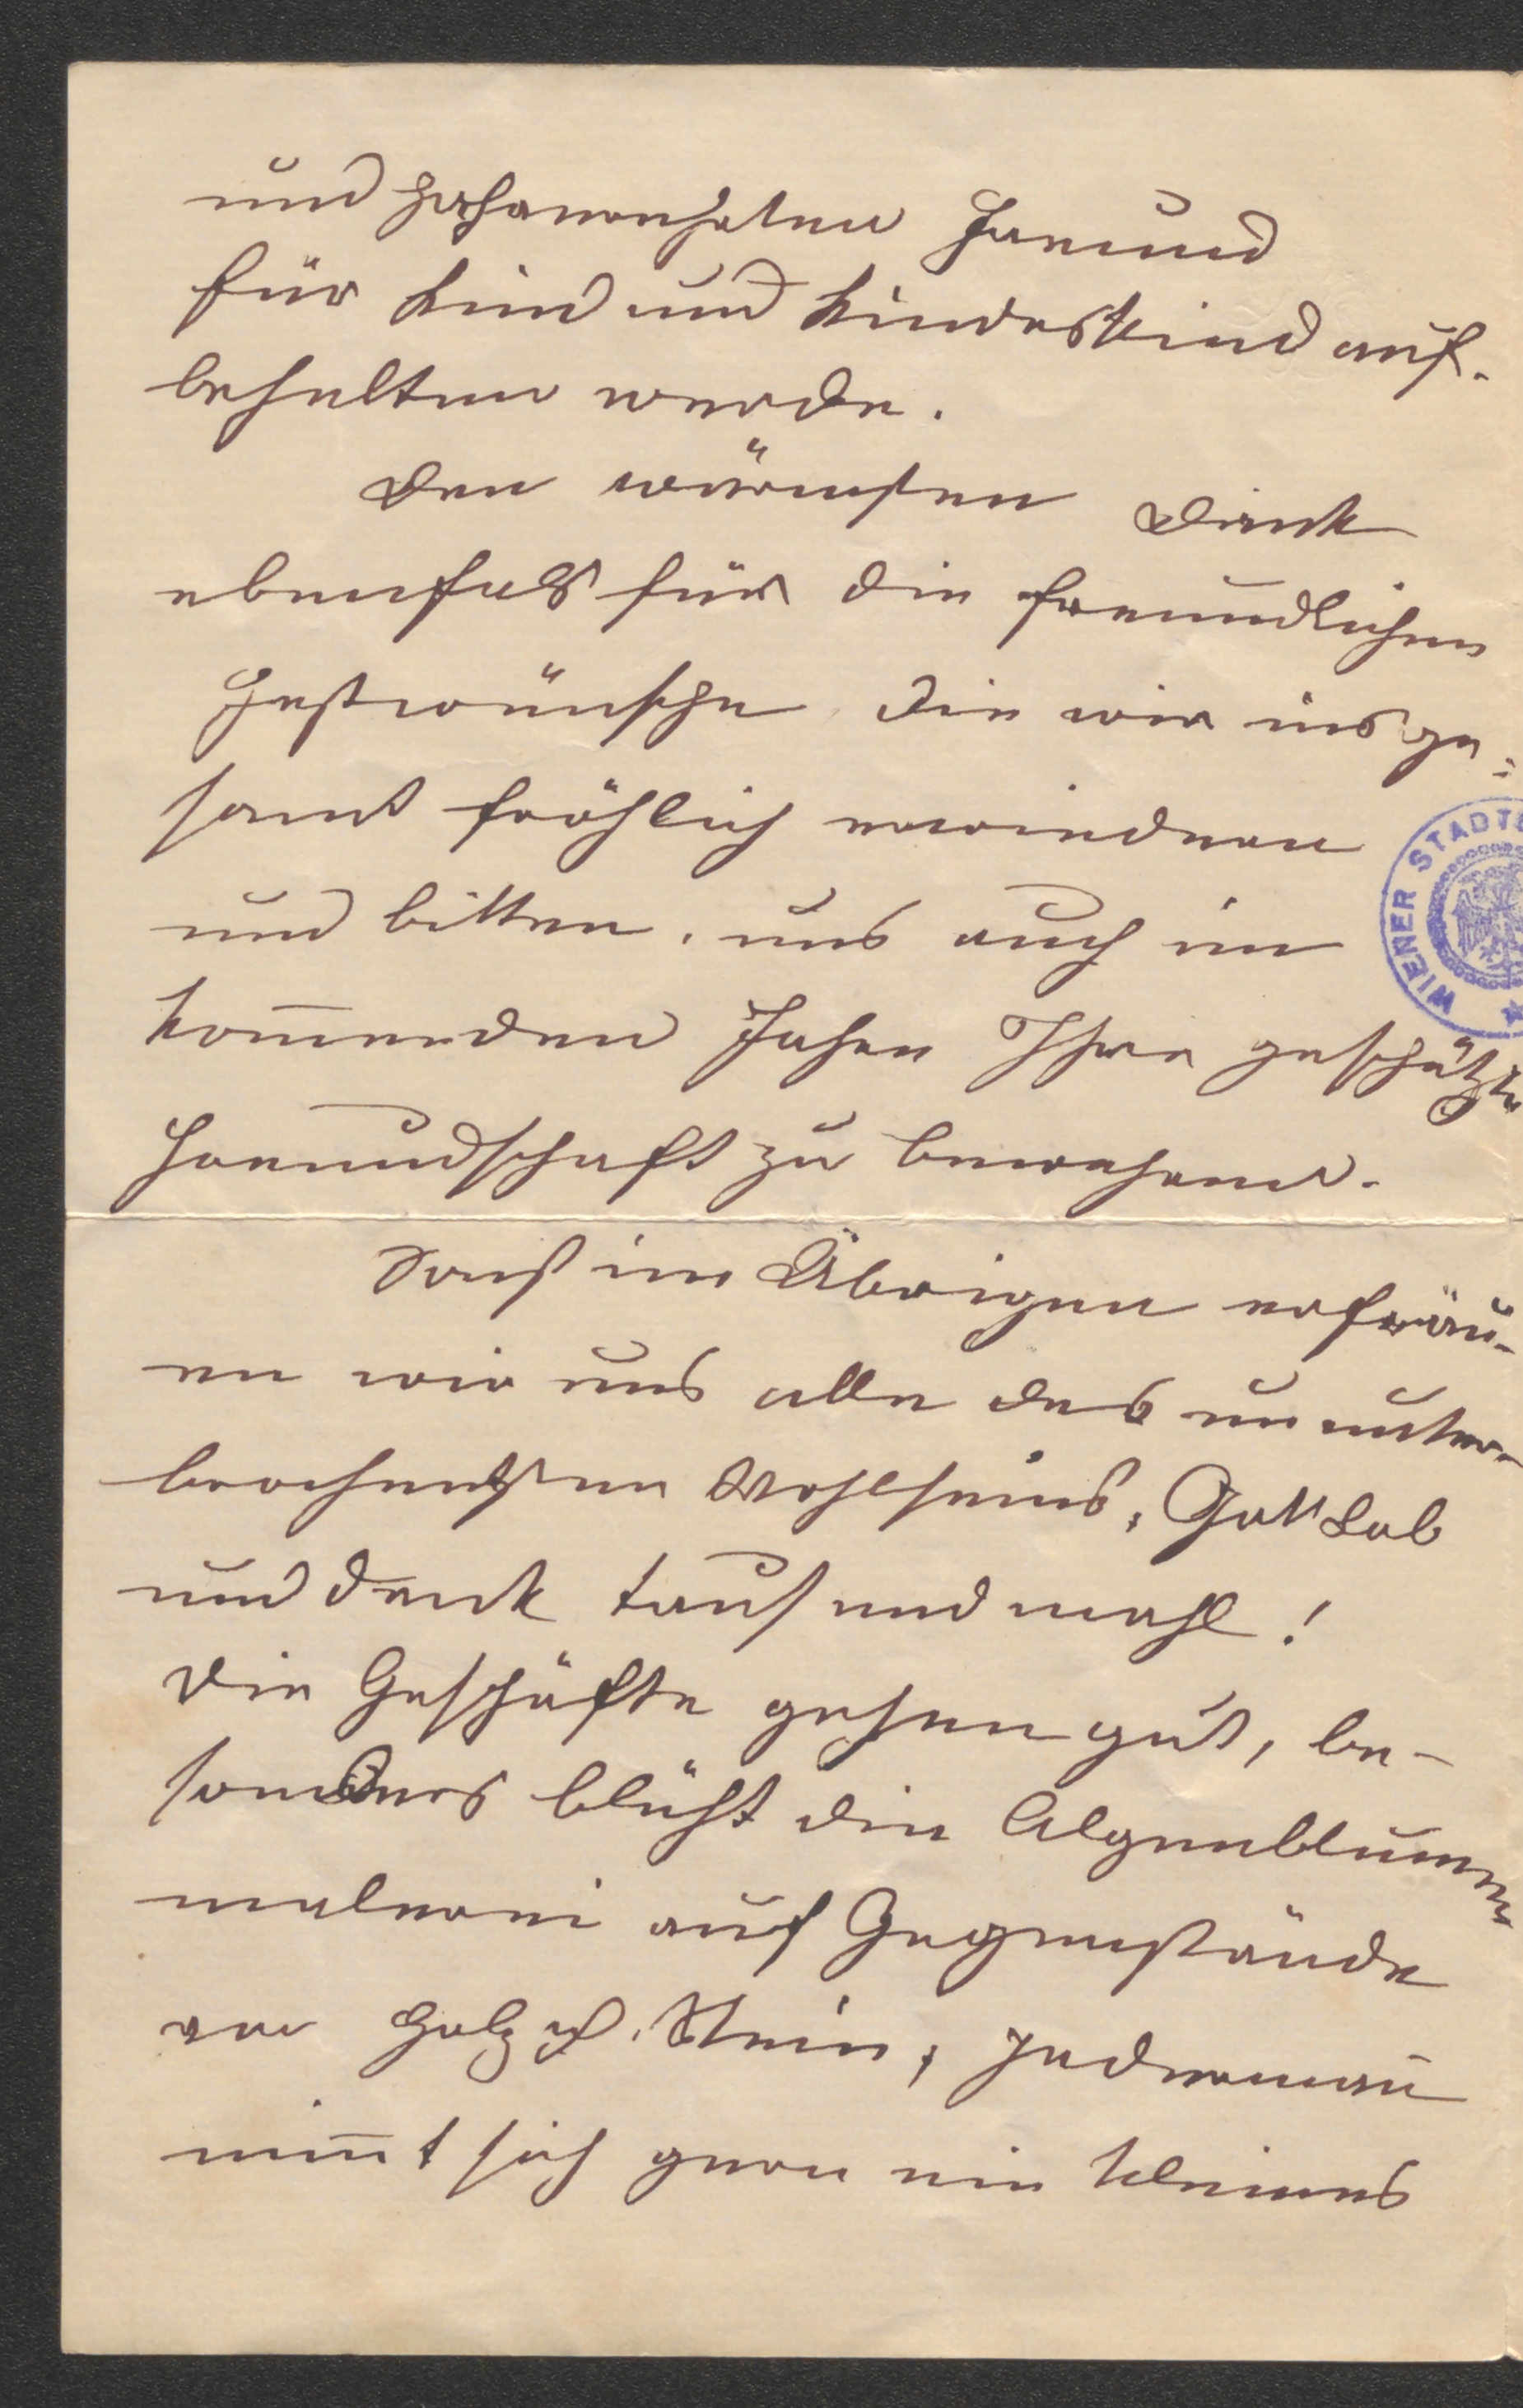 und hochverehrten Freund
für Kind und Kindeskind auf-
behalten werde.
Den wärmsten Dank
ebenfals für die freundlichen
Festwünsche die wir insge=
samt fröhlich erwiedern
und bitten, uns auch im
kom̅enden Jahre Ihre geschätzte
Freundschaft zu bewahren.
Sonst im Übrigen erfräu-
en wir uns alle des ununter-
brochensten Wohlseins, Gott Lob
und Dank tausendmahl!
Die Geschäfte gehen gut, be-
sonders blüht die Algenblumen
malerei auf Gegenstände
von Holz u. Stein, jederman̅
nim̅t sich gern ein kleines
WIENER STADT